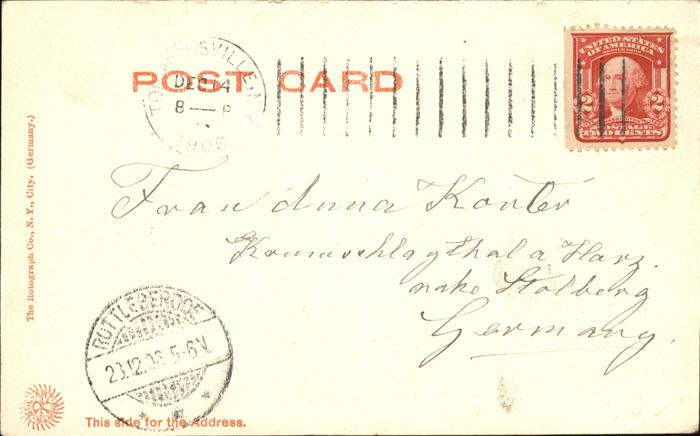 POST CARD
DEC 14
8—P
1906
UNITED STATES
OF AMERICA
2 2
POSTAGE
TWO CENTS
Frau Anna Korter
Krummschlagthal a Harz.
nahe Stolberg
Germany.
ROTTLEBERODE
23.12.06.5-6V.
This side for the Address.
The Rotograph Co., N. Y., City. (Germany.)